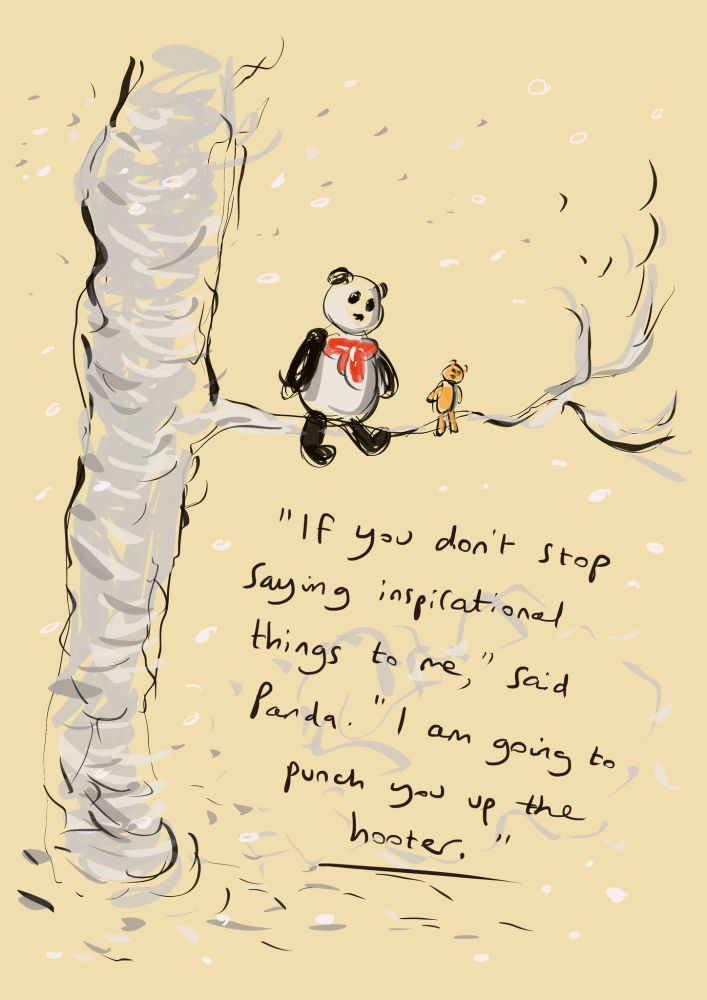 "If you don't stop
saying inspirational
things to me," said
Panda. "I am going to
punch you up the
hooter."